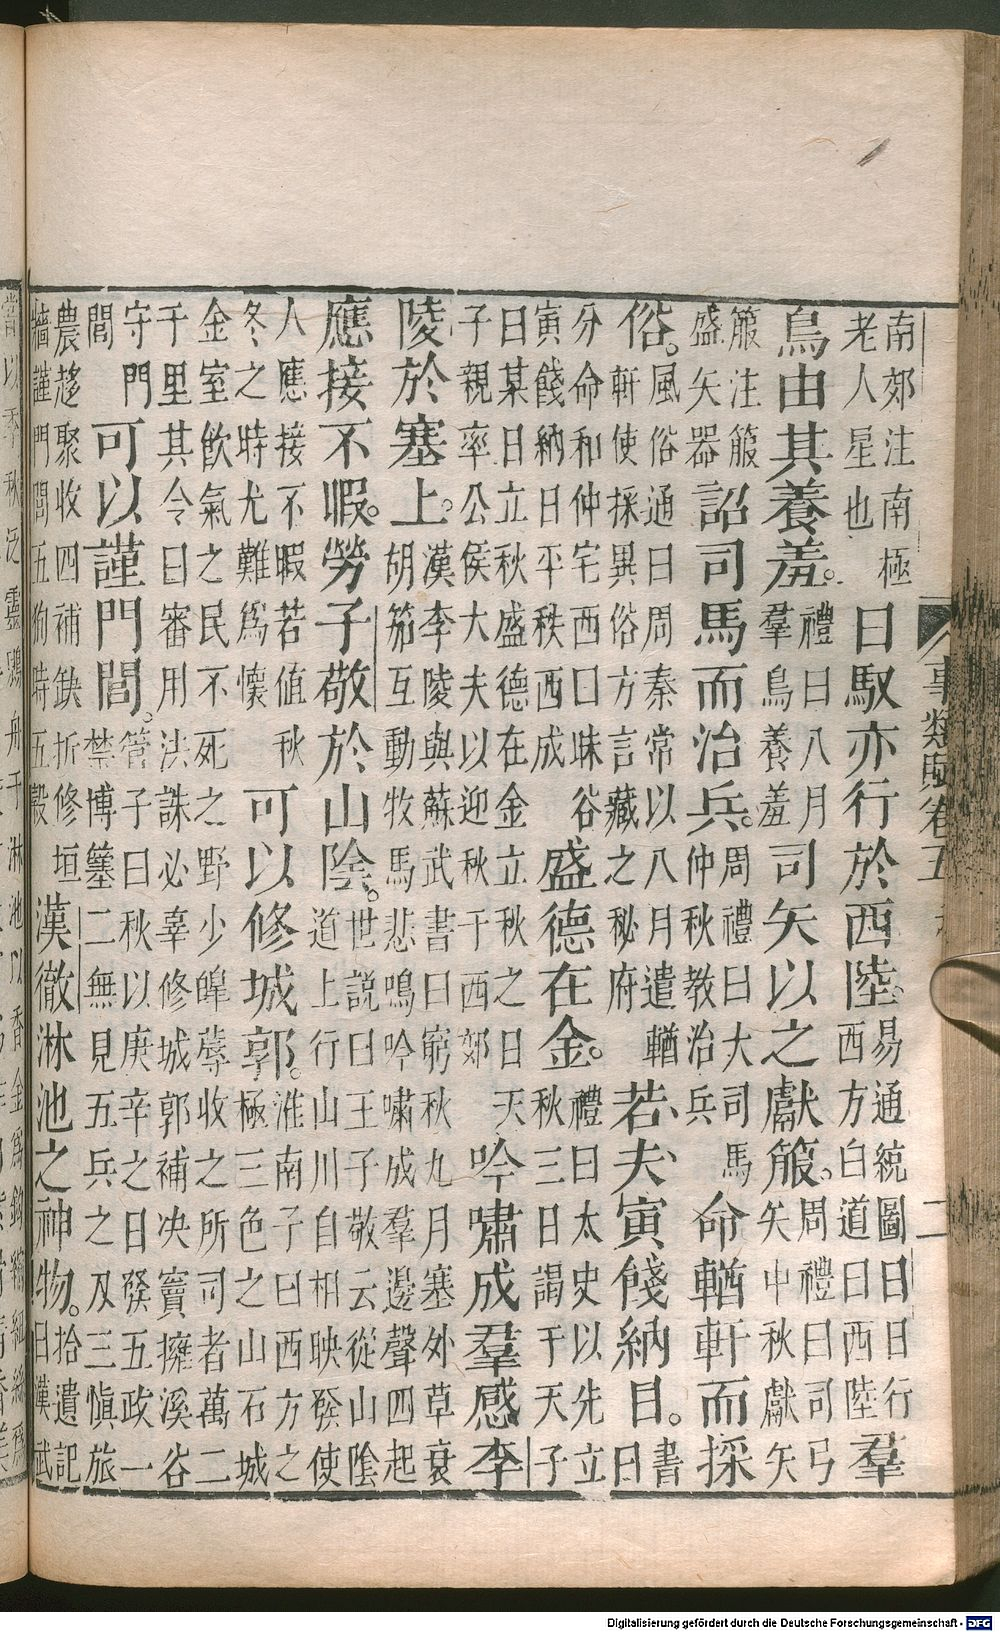 南郊注南極老人星也日馭亦行於西陸。易通統圖曰日行西方白道曰西陸羣
鳥由其養羞。禮曰八月羣鳥養羞司矢以之獻箙。周禮曰司弓矢中秋獻矢
箙注箙盛矢器詔司馬而治兵。周禮曰大司馬仲秋教治兵命輶軒而採
俗。風俗通曰周秦常以八月遣輶軒使採異俗方言藏之秘府若夫寅餞納日。書曰
分命和仲宅西曰昧谷寅餞納日平秩西成盛德在金。禮曰太史以先立秋三日謁于天子
曰某日立秋盛德在金立秋之日天子親率公侯大夫以迎秋于西郊吟嘯成羣感李
陵於塞上。漢李陵與蘇武書曰窮秋九月塞外草衰胡笳互動牧馬悲鳴吟嘯成羣邊聲四起
應接不暇。勞子敬於山陰。世説曰王子敬云從山陰道上行山川自相映發使
人應接不暇若值秋冬之時尤難爲懷可以修城郭。淮南子曰西方之極三色之山石城
金室飲氣之民不死之野少皞蓐收之所司者萬二千里其令曰審用法誅必辜修城郭補决竇擁溪谷
守門閭可以謹門閭。管子曰秋以庚辛之日發五政一禁博簺二無見五兵之及三慎旅
農趍聚收四補缺折修垣墻謹門閭五狥時五穀漢徹淋池之神物。拾遺記曰漢武
事類賦卷五
二
Digitalisierung gefördert durch die Deutsche Forschungsgemeinschaft - DFG